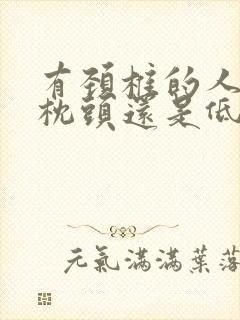 有頚椎的人
枕頭還是低
元氣滿滿葉落